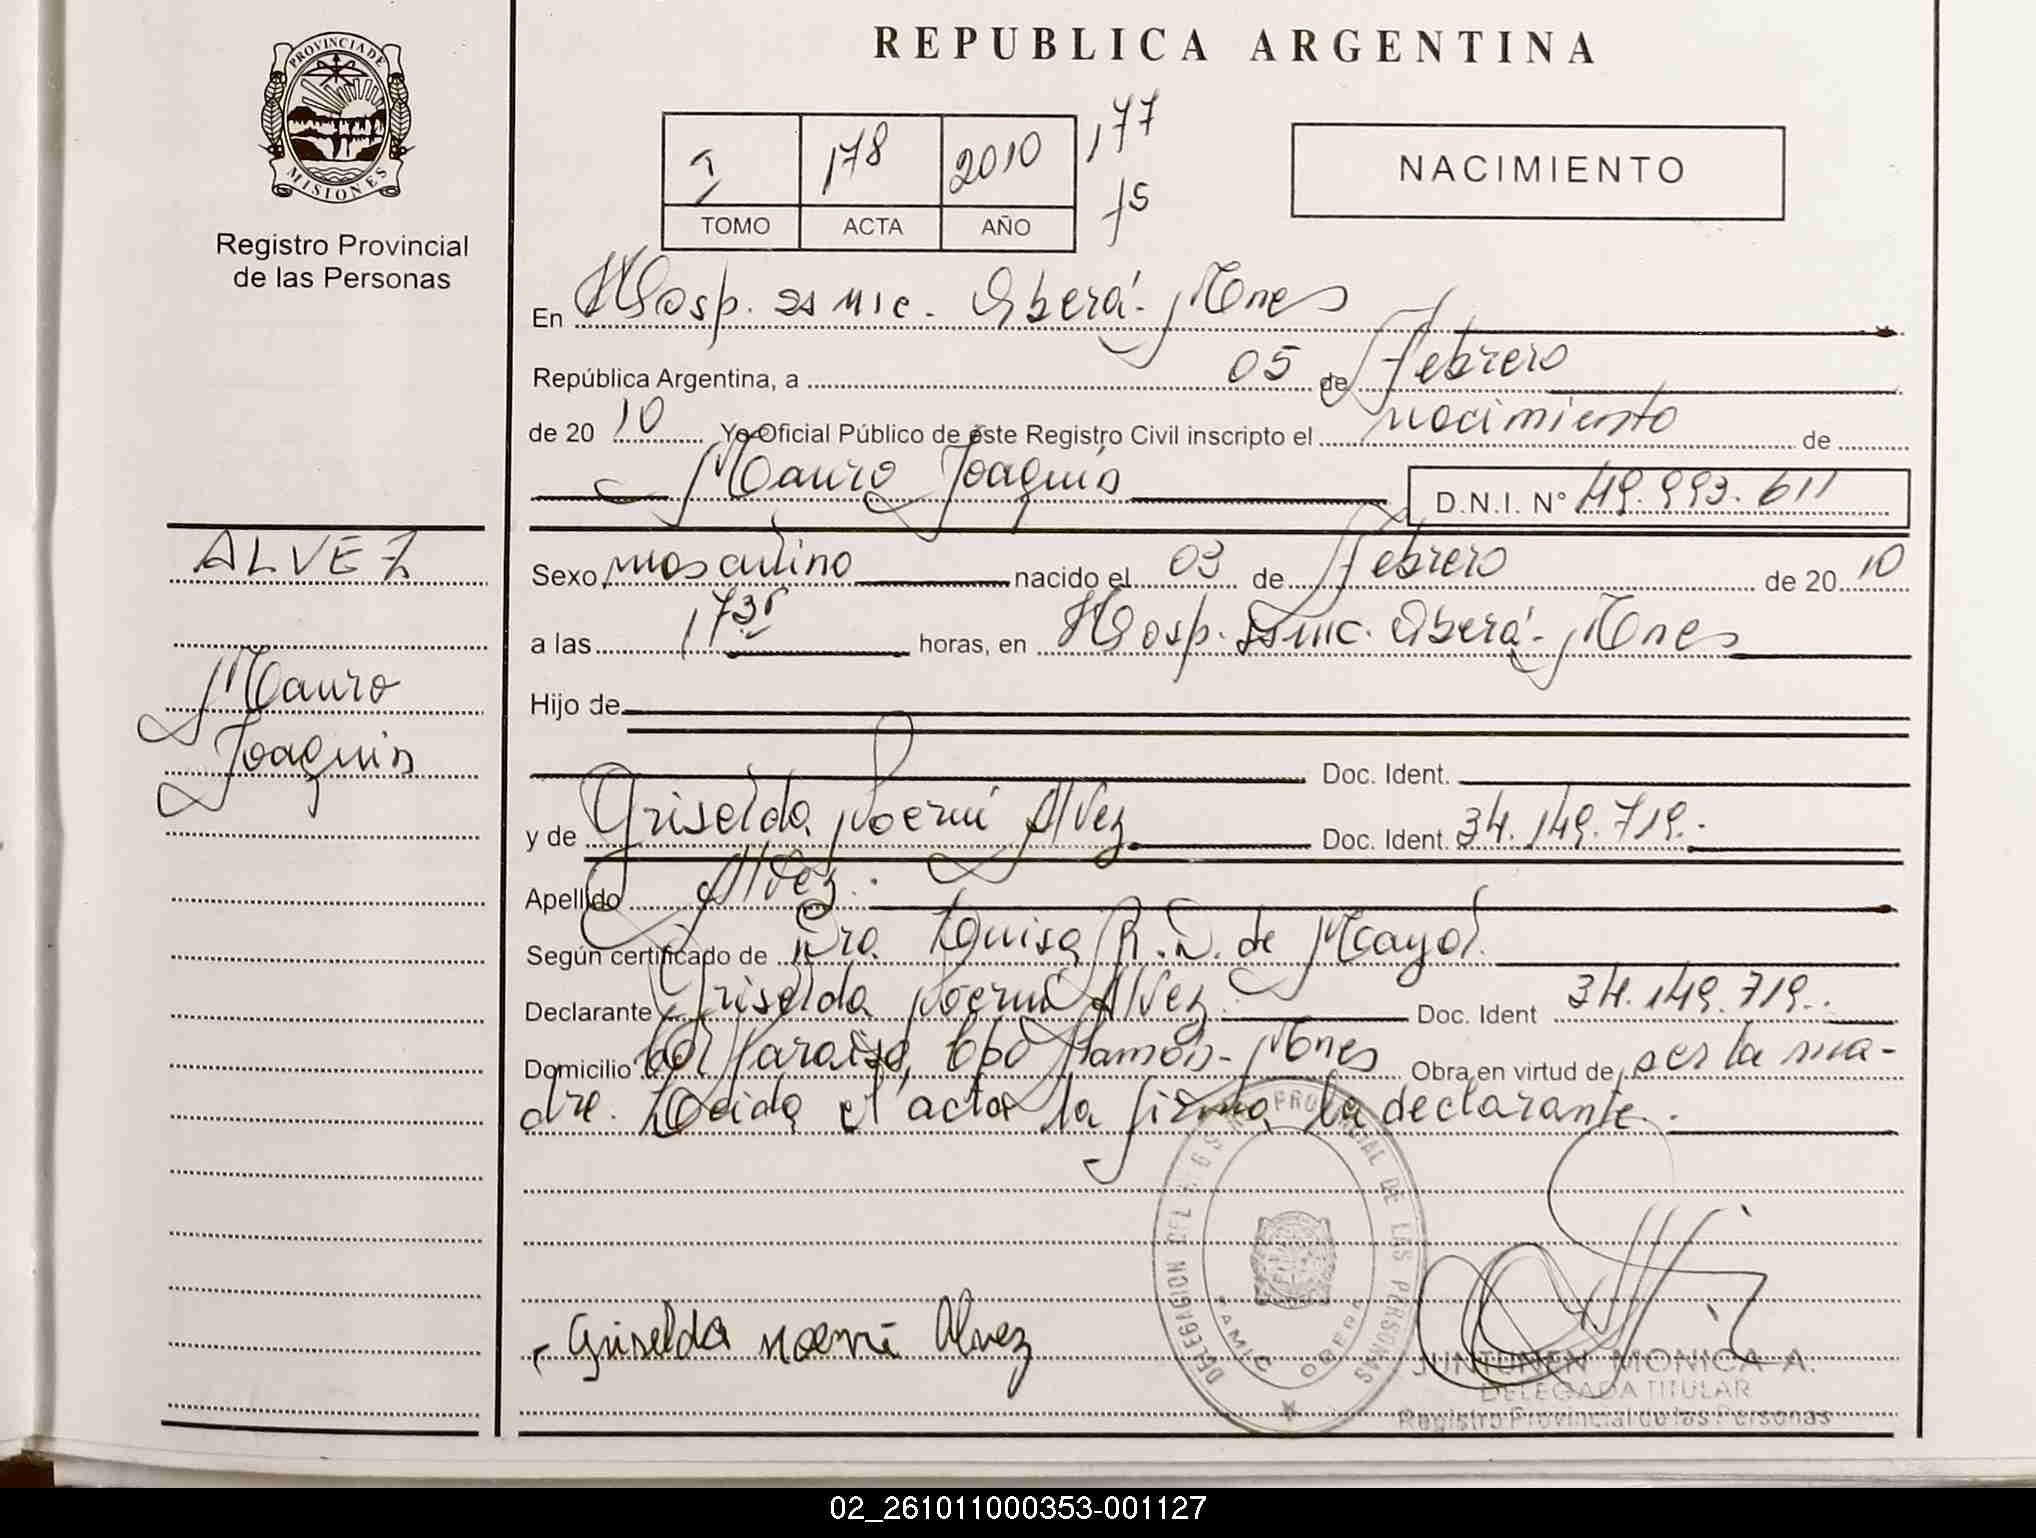 REPUBLICA ARGENTINA
PROVINCIA DE
MISIONES
Registro Provincial
de las Personas
I 178 2010 177
75
TOMO ACTA AÑO
NACIMIENTO
En Hosp. SAMIC. Oberá - Mnes
República Argentina, a 05 de Febrero
de 20 10 Yo Oficial Público de este Registro Civil inscripto el nacimiento de
Mauro Joaquín D.N.I. N° 49.993.611
ALVEZ
Mauro
Joaquín
Sexo masculino nacido el 03 de Febrero de 20 10
a las 17 30 horas, en Hosp. SAMIC. Oberá - Mnes
Hijo de
Doc. Ident.
y de Griselda Noemí Alvez Doc. Ident. 34.149.719.-
Apellido Alvez.
Según certificado de Dra. Louisa R. D. de Mayol.
Declarante Griselda Noemí Alvez. Doc. Ident 34.149.719..
Domicilio Col Paraíso, Cpo Ramón - Mnes Obra en virtud de ser la ma-
dre. Leída el acta la firma la declarante.
Griselda Noemi Alvez
DELEGACION DEL REGISTRO PROVINCIAL DE LAS PERSONAS
SAMIC OBERA
JUNTUNEN MONICA A.
DELEGADA TITULAR
Registro Provincial de las Personas
02_261011000353-001127